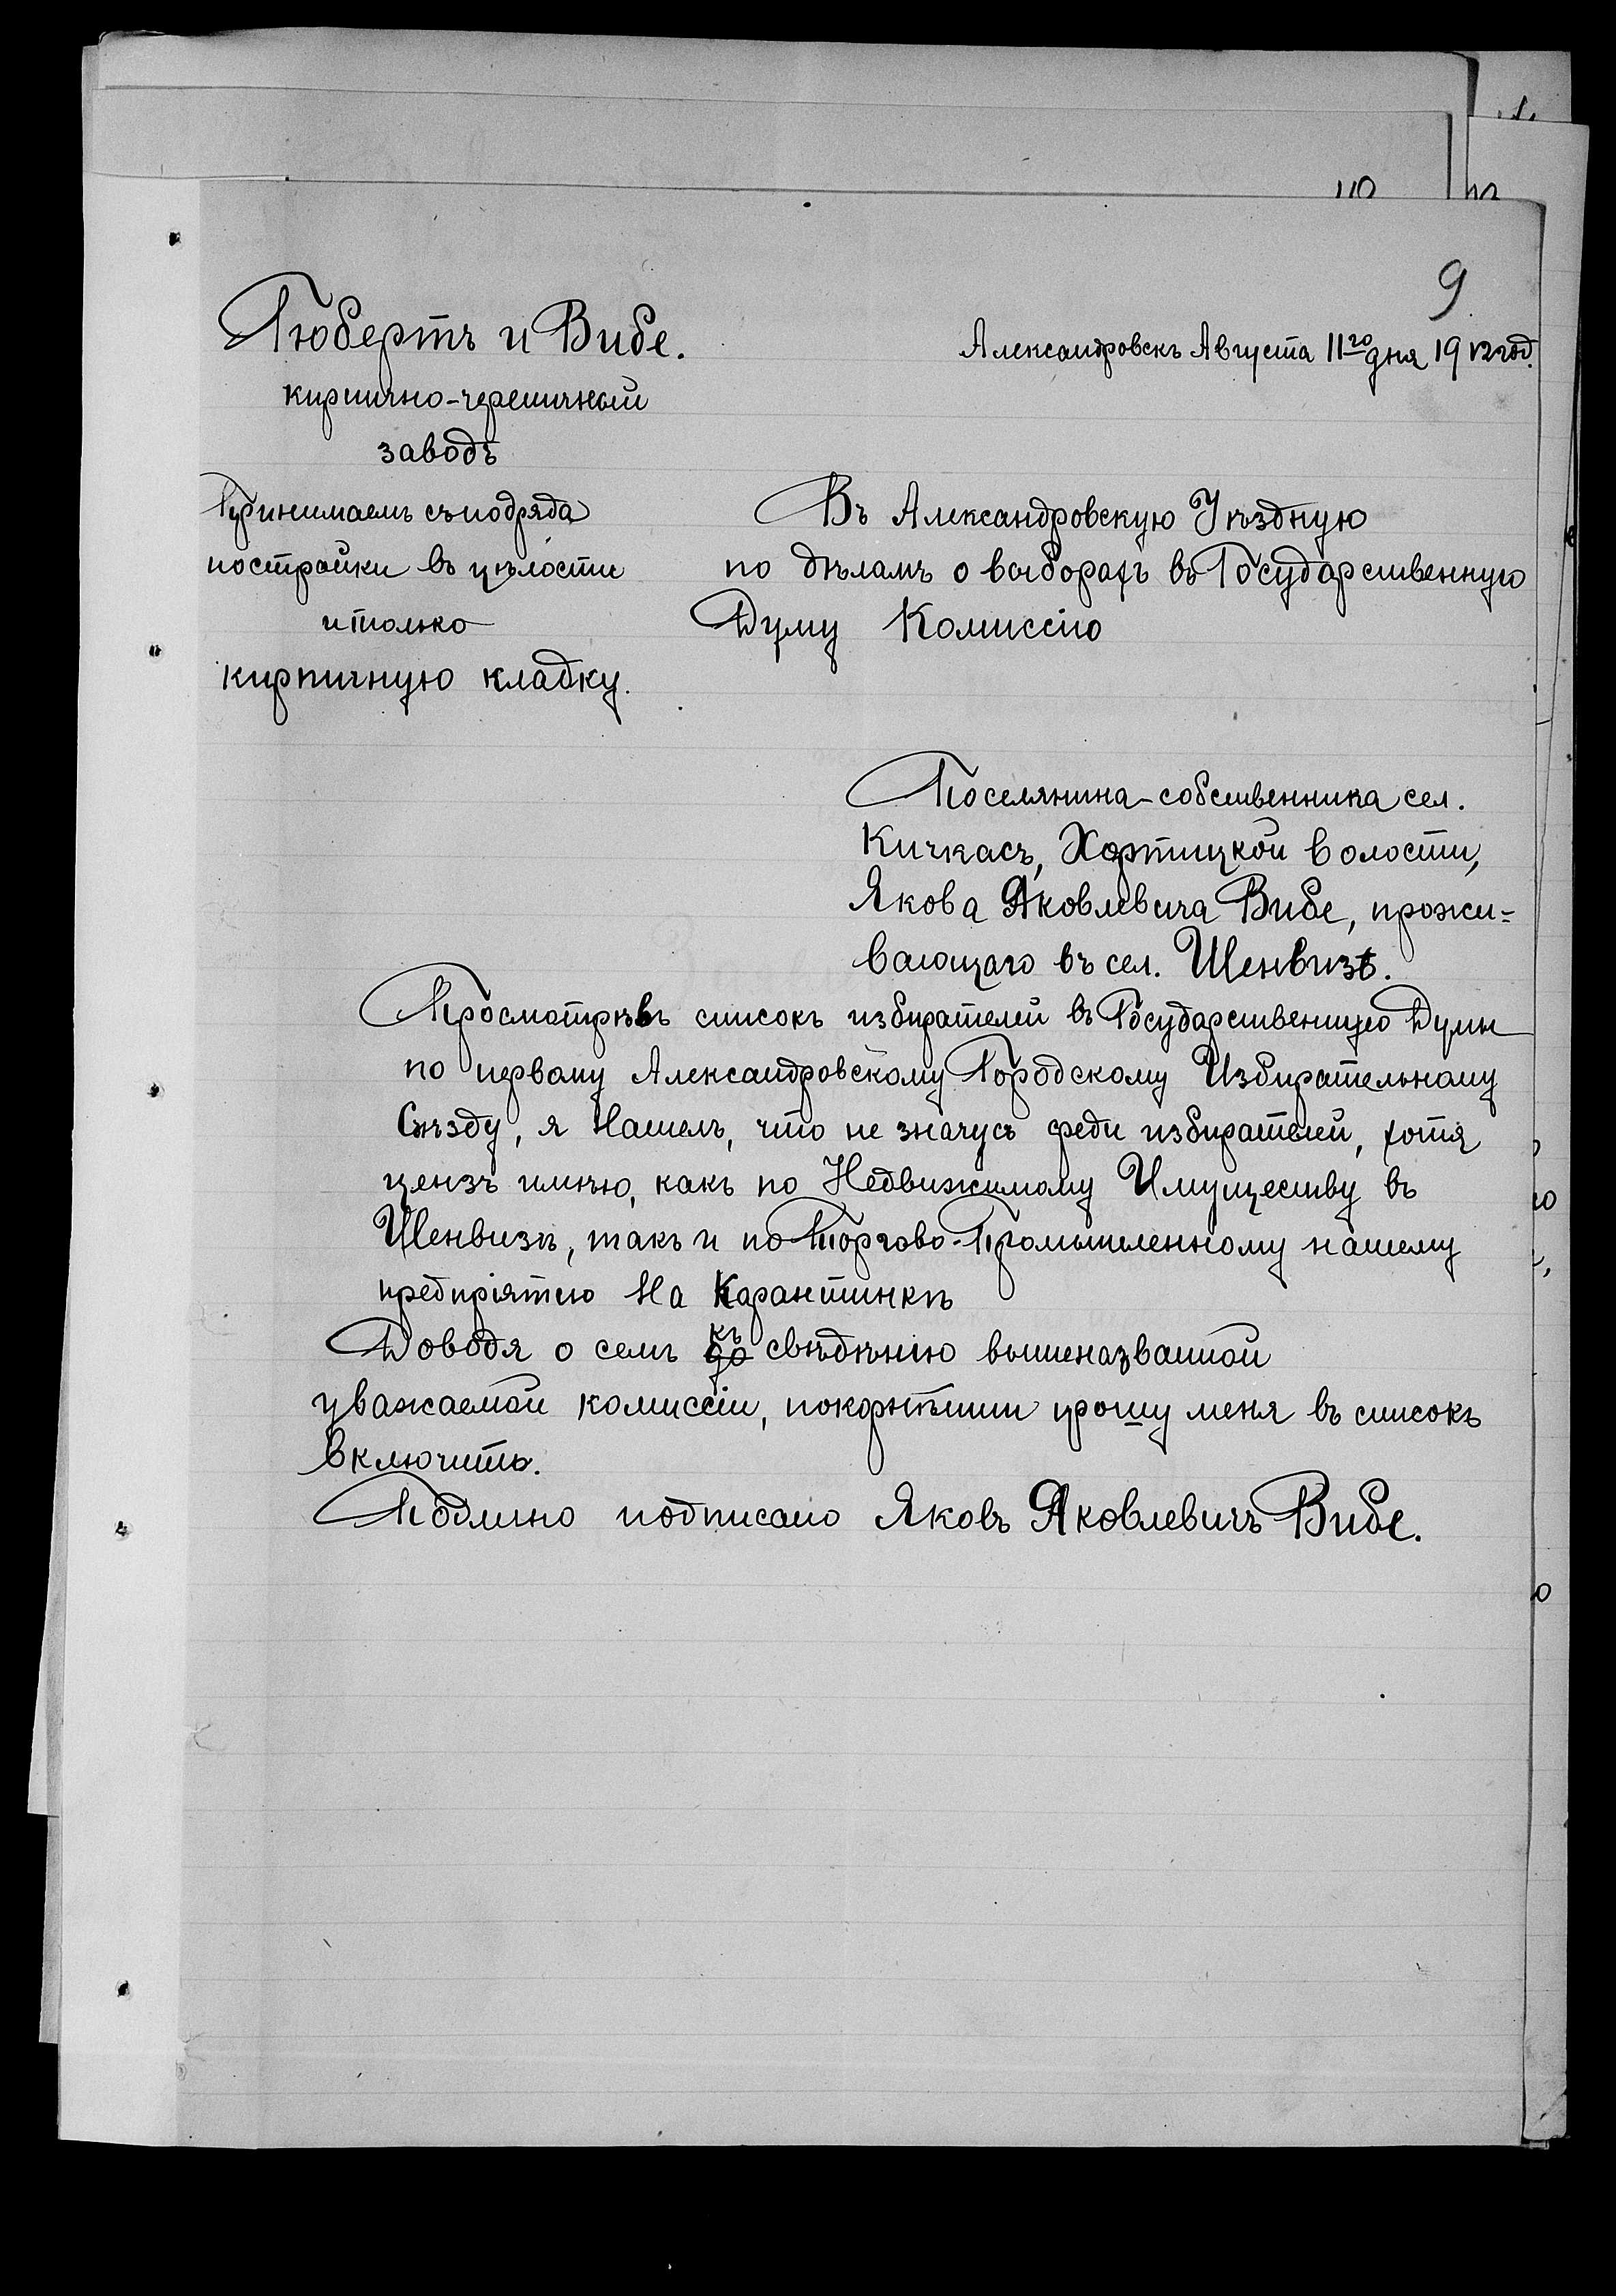 9
Гюбертъ и Вибе.
Александровскъ Августа 11го дня 1912 год.
кирпично-черепичный
заводъ
Принимаемъ съ подряда
постройки въ цѣлости
и только
кирпичную кладку.
Въ Александровскую Уѣздную
по дѣламъ о выборахъ въ Государственную
Думу Комиссію
Поселянина-собственника сел.
Кичкасъ, Хортицкой волости,
Якова Яковлевича Вибе, прожи-
вающаго въ сел. Шенвизѣ.
Просмотрѣвъ списокъ избирателей въ Государственную Думы
по первому Александровскому Городскому Избирательному
Съѣзду, я нашелъ, что не значусь среди избирателей, хотя
цензъ имѣю, какъ по Недвижимому Имуществу въ
Шенвизѣ, такъ и по Торгово-Промышленному нашему
предпріятію на Карантинкѣ
Доводя о семъ до къ свѣдѣнію вышеназванной
уважаемой комиссіи, покорнѣйши прошу меня въ списокъ
включить.
Подлино подписано Яковъ Яковлевичъ Вибе.